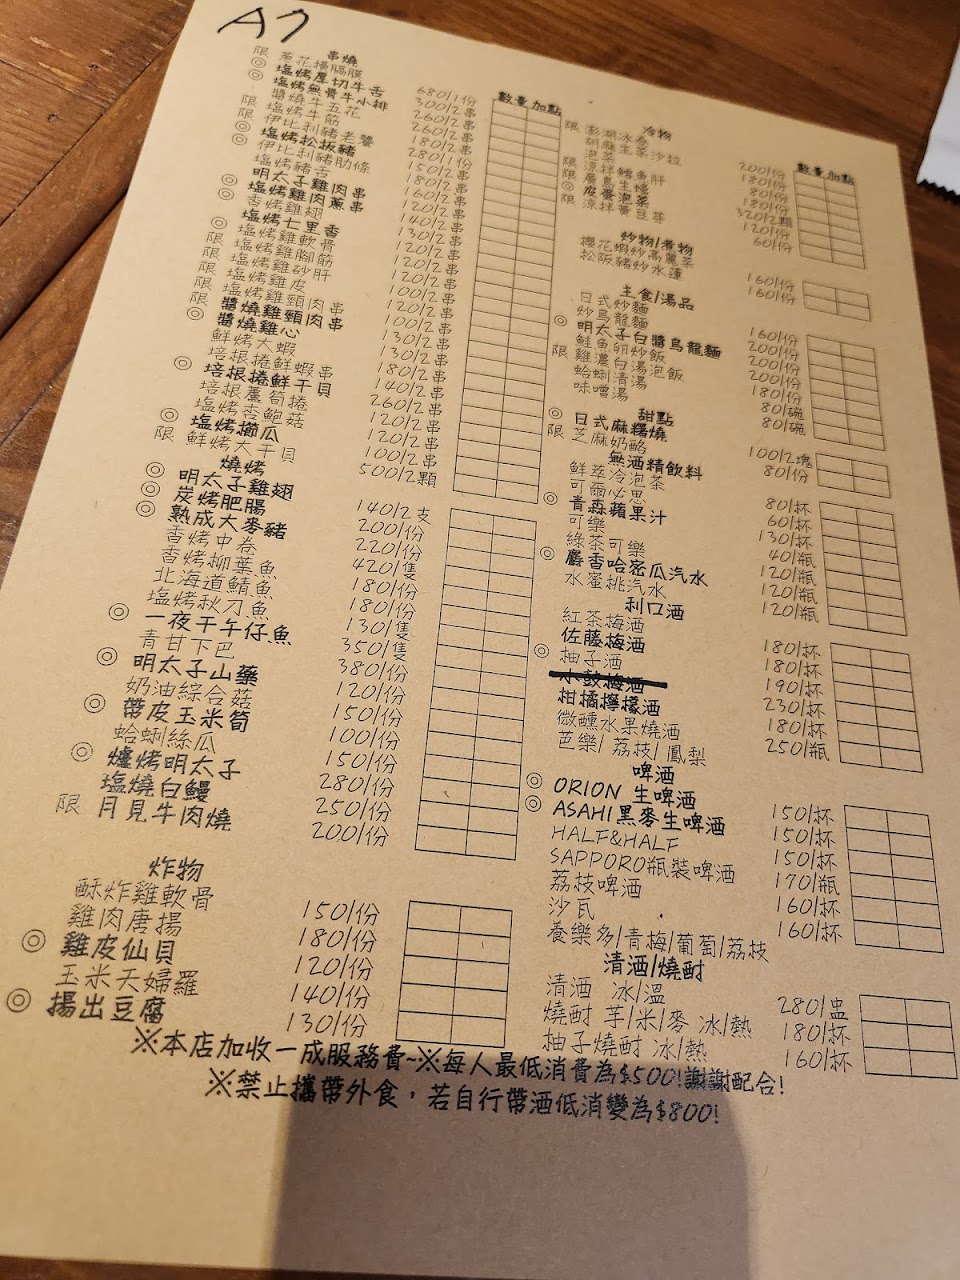 A7
串燒
限 蔥花橫膈膜
◎ 塩烤厚切牛舌
◎ 塩烤無骨牛小排
醬燒牛五花
限 塩烤牛筋
伊比利豬老饕
◎ 塩烤松板豬
伊比利豬肋條
塩烤豬舌
明太子雞肉串
◎ 塩烤雞肉蔥串
香烤雞翅
塩烤七里香
塩烤雞軟骨
塩烤雞腳筋
塩烤雞砂肝
塩烤雞皮
塩烤雞頸肉串
醬燒雞頸肉串
醬燒雞心
鮮烤大蝦
培根捲鮮蝦串
◎ 培根捲干貝
培根蘆筍捲
塩烤杏鮑菇
◎ 塩烤櫛瓜
限 鮮烤大干貝
數量 加點
680/1份
300/2串
260/2串
260/2串
180/2串
280/1份
150/2串
180/2串
160/2串
120/2串
140/2串
130/2串
120/2串
120/2串
100/2串
120/2串
100/2串
130/2串
130/2串
180/2串
140/2串
260/2串
120/2串
120/2串
100/2串
500/2顆
燒烤
◎ 明太子雞翅 140/2支
◎ 炭烤肥腸 200/份
◎ 熟成大麥豬 220/份
香烤中卷 420/隻
香烤柳葉魚 180/份
北海道鯖魚 180/份
塩烤秋刀魚 130/隻
◎ 一夜干午仔魚 350/隻
青甘下巴 380/份
◎ 明太子山藥 120/份
奶油綜合菇 150/份
◎ 帶皮玉米筍 100/份
蛤蜊絲瓜 150/份
◎ 爐烤明太子 280/份
塩燒白鰻 250/份
限 月見牛肉燒 200/份
炸物
酥炸雞軟骨 150/份
雞肉唐揚 180/份
◎ 雞皮仙貝 120/份
玉米天婦羅 140/份
◎ 揚出豆腐 130/份
數量 加點
冷物
限 澎湖冰卷 200/份
胡麻生菜沙拉 180/份
泡菜 80/份
限 涼拌鱈魚肝 180/份
限 廣島生蠔 320/2顆
◎ 皮蛋泡菜 120/份
限 涼拌黃豆芽 60/份
炒物/煮物
櫻花蝦炒高麗菜 160/份
松阪豬炒水蓮 160/份
主食/湯品
日式炒麵 160/份
炒烏龍麵 200/份
◎ 明太子白醬烏龍麵 200/份
鮭魚卵炒飯 200/份
限 雞濃白湯泡飯 180/份
蛤蜊清湯 80/碗
味噌湯 80/碗
甜點
◎ 日式麻糬燒 100/2塊
限 芝麻奶酪 80/份
無酒精飲料
鮮萃冷泡茶 80/杯
可爾必思 60/杯
◎ 青森蘋果汁 130/杯
可樂 40/瓶
綠茶可樂 120/瓶
◎ 麝香哈密瓜汽水 120/瓶
水蜜桃汽水 120/瓶
利口酒
紅茶梅酒 180/杯
佐藤梅酒 180/杯
◎ 柚子酒 190/杯
小鼓梅酒 230/杯
柑橘檸檬酒 180/杯
微醺水果燒酒 250/瓶
芭樂/荔枝/鳳梨
啤酒
◎ ORION 生啤酒 150/杯
◎ ASAHI黑麥生啤酒 150/杯
HALF&HALF 150/杯
SAPPORO瓶裝啤酒 170/瓶
荔枝啤酒 160/杯
沙瓦 160/杯
養樂多/青梅/葡萄/荔枝
清酒/燒酎
清酒 冰/溫 280/盅
燒酎 芋/米/麥 冰/熱 180/杯
柚子燒酎 冰/熱 160/杯
※本店加收一成服務費~※每人最低消費為$500!謝謝配合!
※禁止攜帶外食，若自行帶酒低消變為$800!